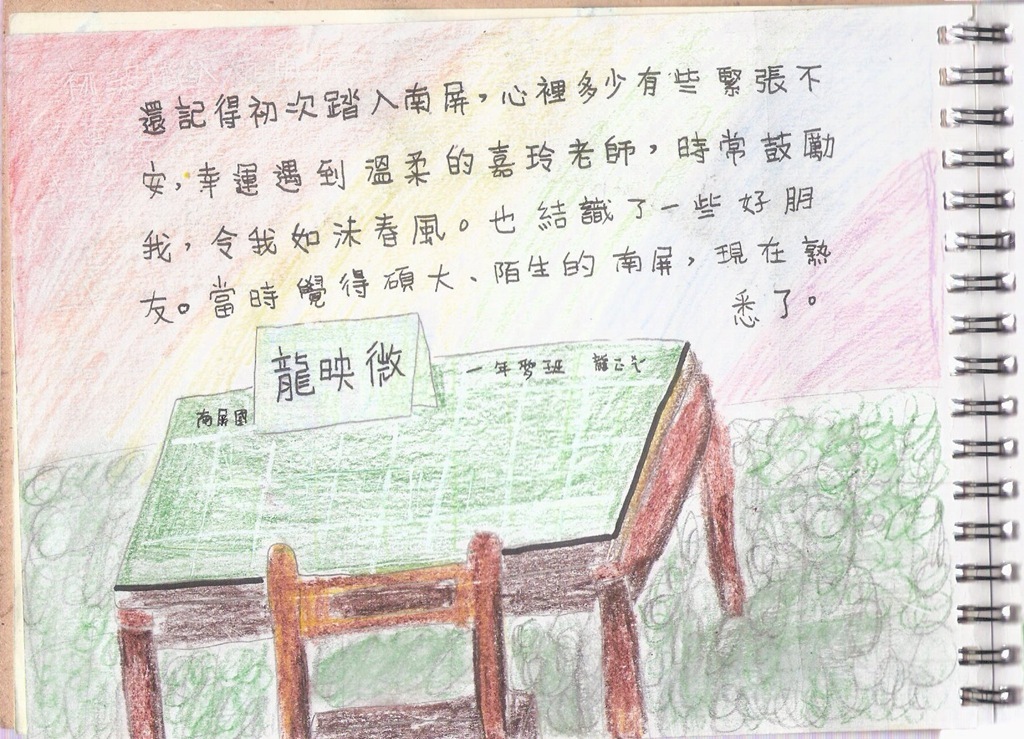 還記得初次踏入南屏，心裡多少有些緊張不
安，幸運遇到溫柔的嘉玲老師，時常鼓勵
我，令我如沐春風。也結識了一些好朋
友。當時覺得碩大、陌生的南屏，現在熟
悉了。
龍映微
一年 班
南屏國